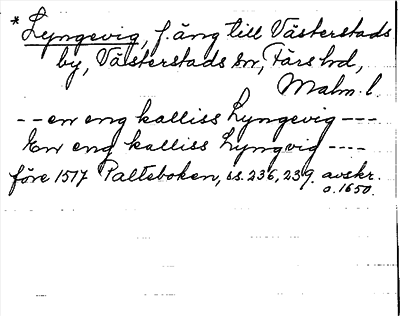 * Lyngevig, f. äng till Västerstads
by, Västerstads sn, Färs hd,
Malm. l.
-- en eng kalliss Lyngevig ---
En eng kalliss Lyngvig ----
före 1517 Palteboken, ss. 236, 239. avskr.
o. 1650.